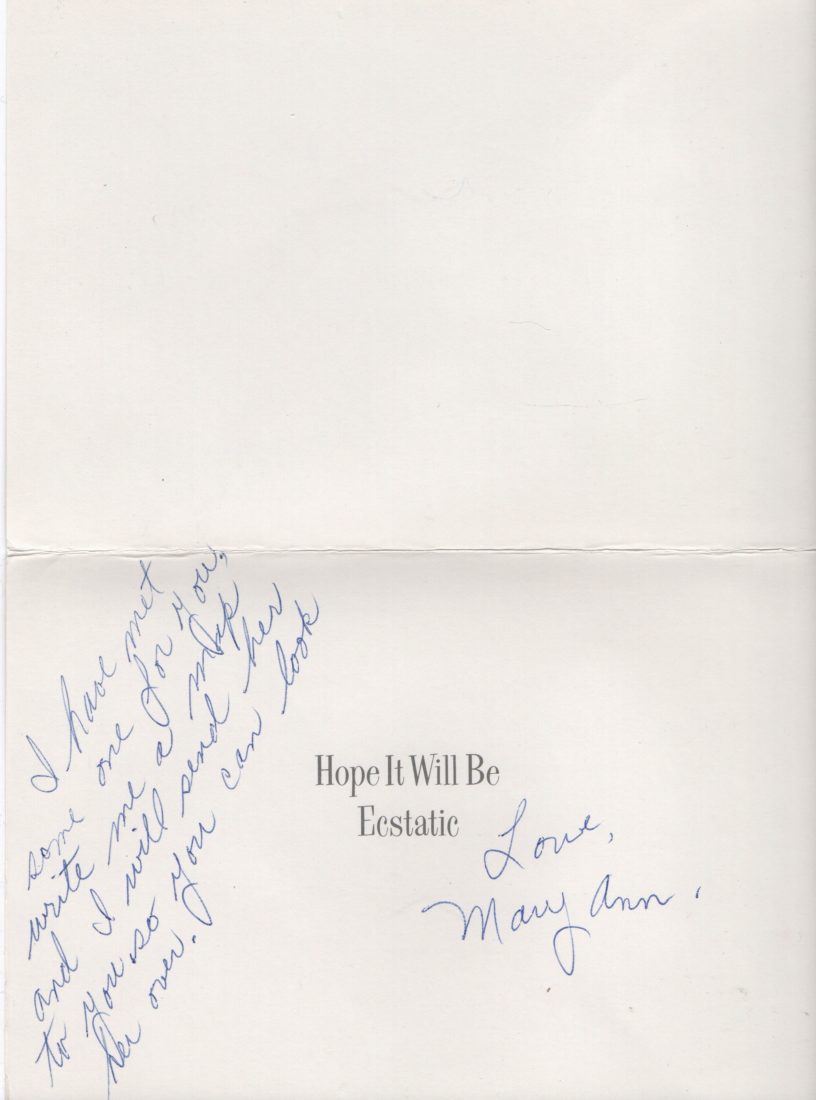 I have met
some one for you,
write me a map
and I will send her
to you so you can look
her over.
Hope It Will Be
Ecstatic
Love,
Mary Ann.